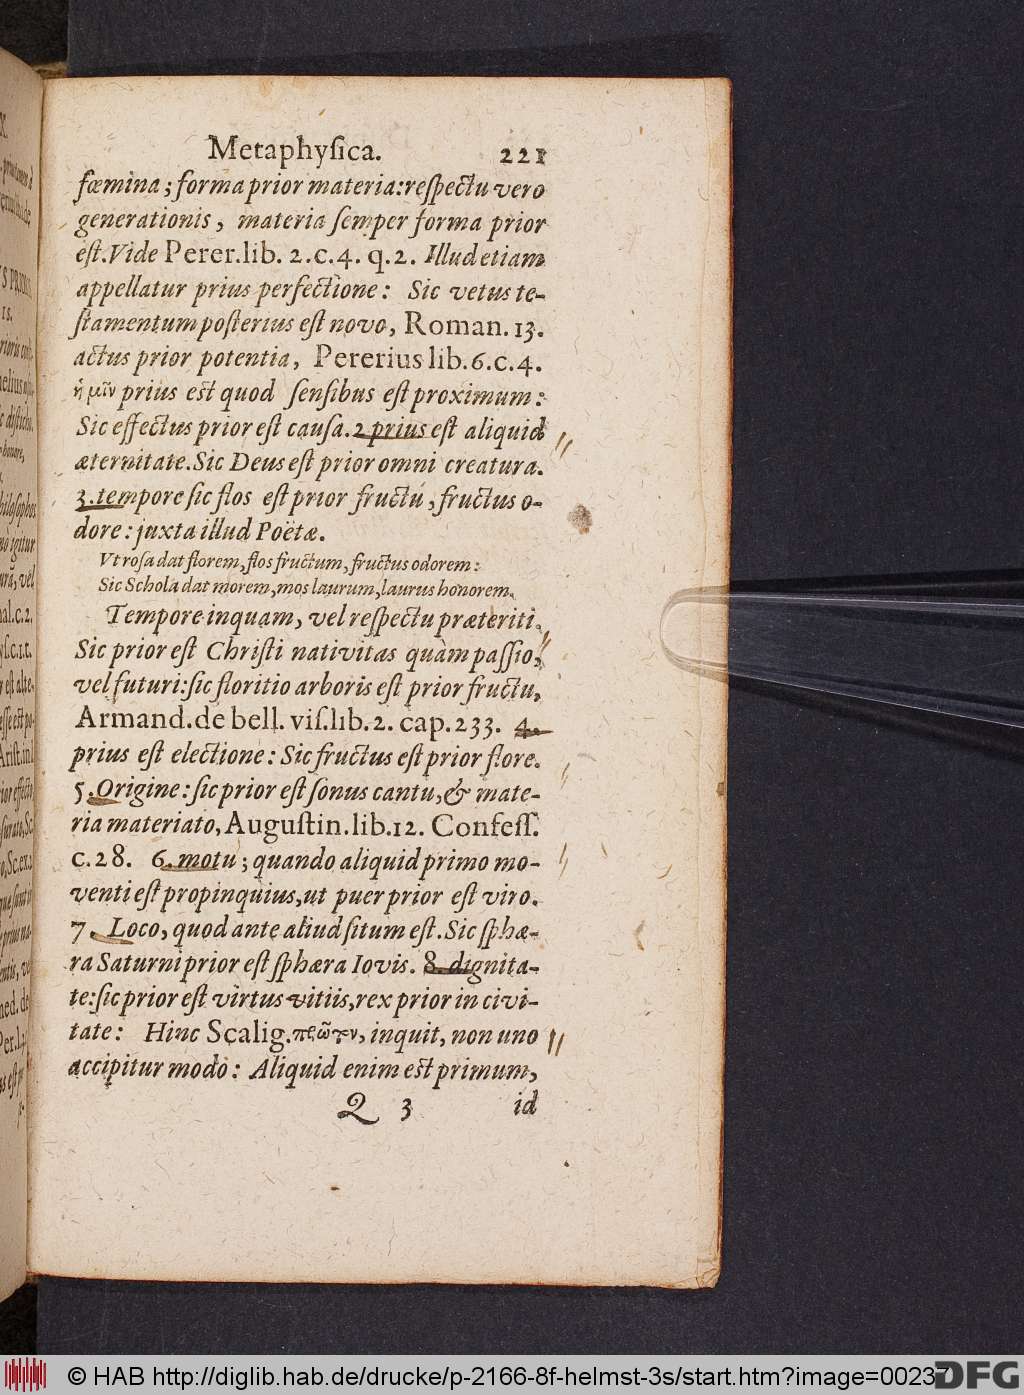 Metaphyſica. 221
fœmina; forma prior materia: reſpectu vero
generationis, materia ſemper forma prior
eſt. Vide Perer. lib. 2. c. 4. q. 2. Illud etiam
appellatur prius perfectione: Sic vetus te-
ſtamentum poſterius eſt novo, Roman. 13.
actus prior potentia, Pererius lib. 6. c. 4.
ἡμῖν prius est quod ſenſibus eſt proximum:
Sic effectus prior eſt cauſa. 2 prius eſt aliquid
æternitate. Sic Deus eſt prior omni creatura.
3. tempore ſic flos eſt prior fructu, fructus o-
dore: juxta illud Poëtæ.
Vt roſa dat florem, flos fructum, fructus odorem:
Sic Schola dat morem, mos laurum, laurus honorem.
Tempore inquam, vel reſpectu præteriti.
Sic prior eſt Chriſti nativitas quàm paſſio,
vel futuri: ſic floritio arboris eſt prior fructu,
Armand. de bell. viſ. lib. 2. cap. 233. 4.
prius eſt electione: Sic fructus eſt prior flore.
5. Origine: ſic prior eſt ſonus cantu, & mate-
ria materiato, Auguſtin. lib. 12. Confeſſ.
c. 28. 6. motu; quando aliquid primo mo-
venti eſt propinquius, ut puer prior eſt viro.
7. Loco, quod ante aliud ſitum eſt. Sic ſphæ-
ra Saturni prior eſt ſphæra Iovis. 8. dignita-
te: ſic prior eſt virtus vitiis, rex prior in civi-
tate: Hinc Scalig. πρῶτον, inquit, non uno
accipitur modo: Aliquid enim est primum,
Q 3 id
© HAB http://diglib.hab.de/drucke/p-2166-8f-helmst-3s/start.htm?image=00237
DFG